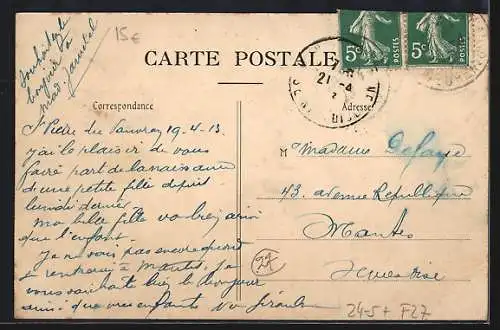 Souhaitez le
bonjour à
15€
CARTE POSTALE
5c POSTES
5c POSTES
21 -4
Correspondance
Adresse
St Pierre du Vauvray 19-4-13
j'ai le plaisir de vous
faire part de la naissance
d'une petite fille depuis
lundi dernier.
ma belle fille va bien ainsi
que l'enfant.
Je ne vois pas encore quand
je rentrerai à Mantes. Je
vous souhaite bien le bonjour
ainsi que vos enfants
M Madame
43 avenue République
Mantes
Seine et Oise
27
24-5+ F27